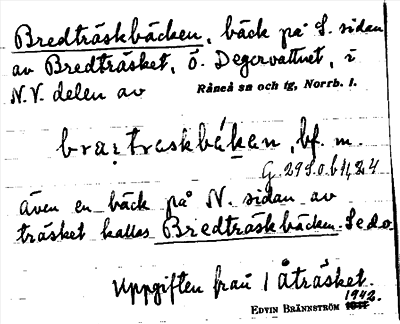 Bredträskbäcken, bäck på S. sidan
av Bredträsket, ö. Degervattnet, i
N.V. delen av Råneå sn och tg, Norrb. l.
bf. m.
även en bäck på N. sidan av
träsket kallas Bredträskbäcken. Se d.o.
Uppgiften från 1 Åträsket.
EDVIN BRÄNNSTRÖM 1942.